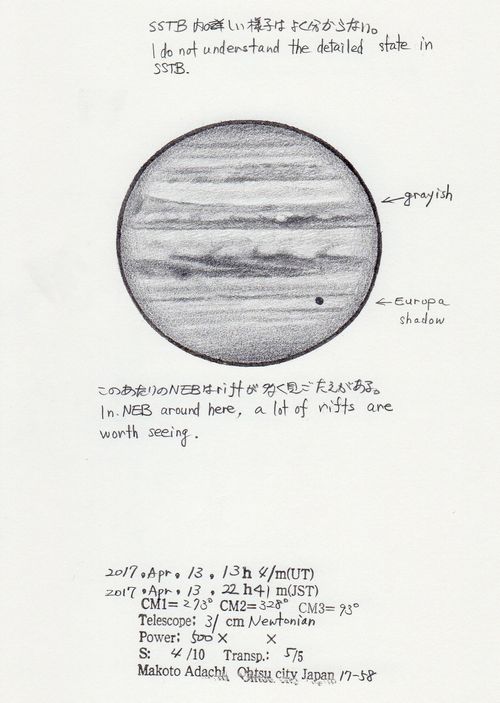 SSTB 内の詳しい様子はよく分からない。
I do not understand the detailed state in
SSTB.
←grayish
←Europa
shadow
このあたりのNEBはriftが多く見ごたえがある。
In NEB around here, a lot of rifts are
worth seeing.
2017.Apr. 13. 13h 41m(UT)
2017.Apr. 13. 22h41m(JST)
CM1=273° CM2=328° CM3=93°
Telescope: 31 cm Newtonian
Power: 500× ×
S: 4/10 Transp.: 5/5
Makoto Adachi Ohtsu city Japan 17-58